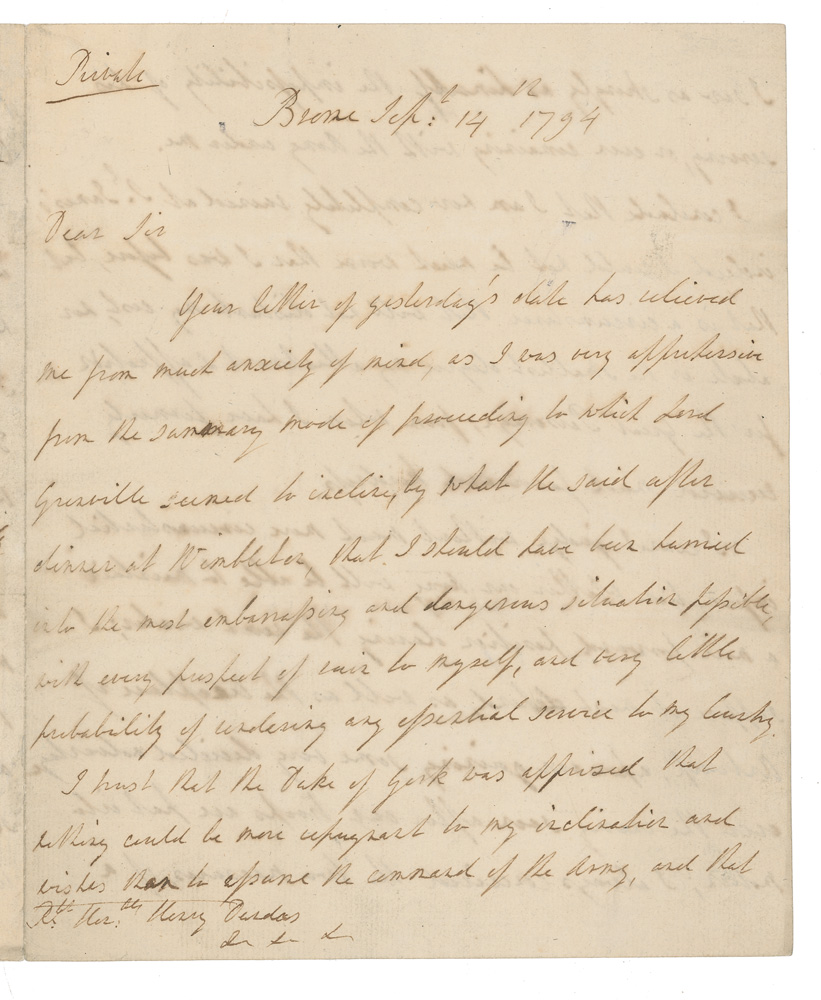 Private
Brome Sept: 14th 1794
Dear Sir
Your letter of yesterday's date has relieved
me from much anxiety of mind, as I was very apprehensive
from the summary mode of proceeding to which Lord
Grenville seemed to incline, by what he said after
dinner at Wimbleton, that I should have been hurried
into the most embarrassing and dangerous situation possible,
with every prospect of ruin to myself, and very little
probability of rendering any essential service to my Country.
I trust that the Duke of York was apprised that
nothing could be more repugnant to my inclination and
wishes than to assume the command of the Army, and that
Rt. Hon:ble Henry Dundas
&c &c &c